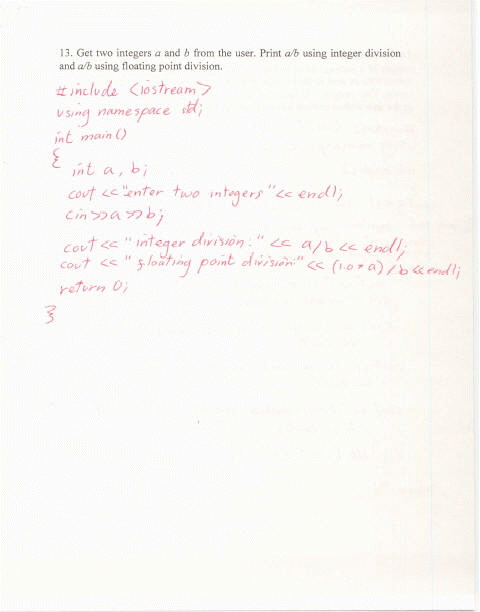 13. Get two integers a and b from the user. Print a/b using integer division
and a/b using floating point division.
#include <iostream>
using namespace std;
int main()
{
int a, b;
cout <<"enter two integers"<< endl;
cin>>a>>b;
cout<< "integer division:" << a/b << endl;
cout << " floating point division:" << (1.0*a)/b<<endl;
return 0;
}